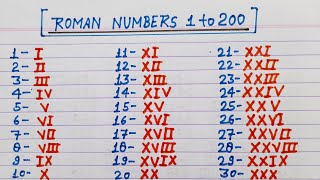 ROMAN NUMBERS 1 to 200
1- I 11- XI 21- XXI
2- II 12- XII 22- XXII
3- III 13- XIII 23- XXIII
4- IV 14- XIV 24- XXIV
5- V 15- XV 25- XXV
6- VI 16- XVI 26- XXVI
7- VII 17- XVII 27- XXVII
8- VIII 18- XVIII 28- XXVIII
9- IX 19- XVIX 29- XXIX
10- X 20 XX 30- XXX